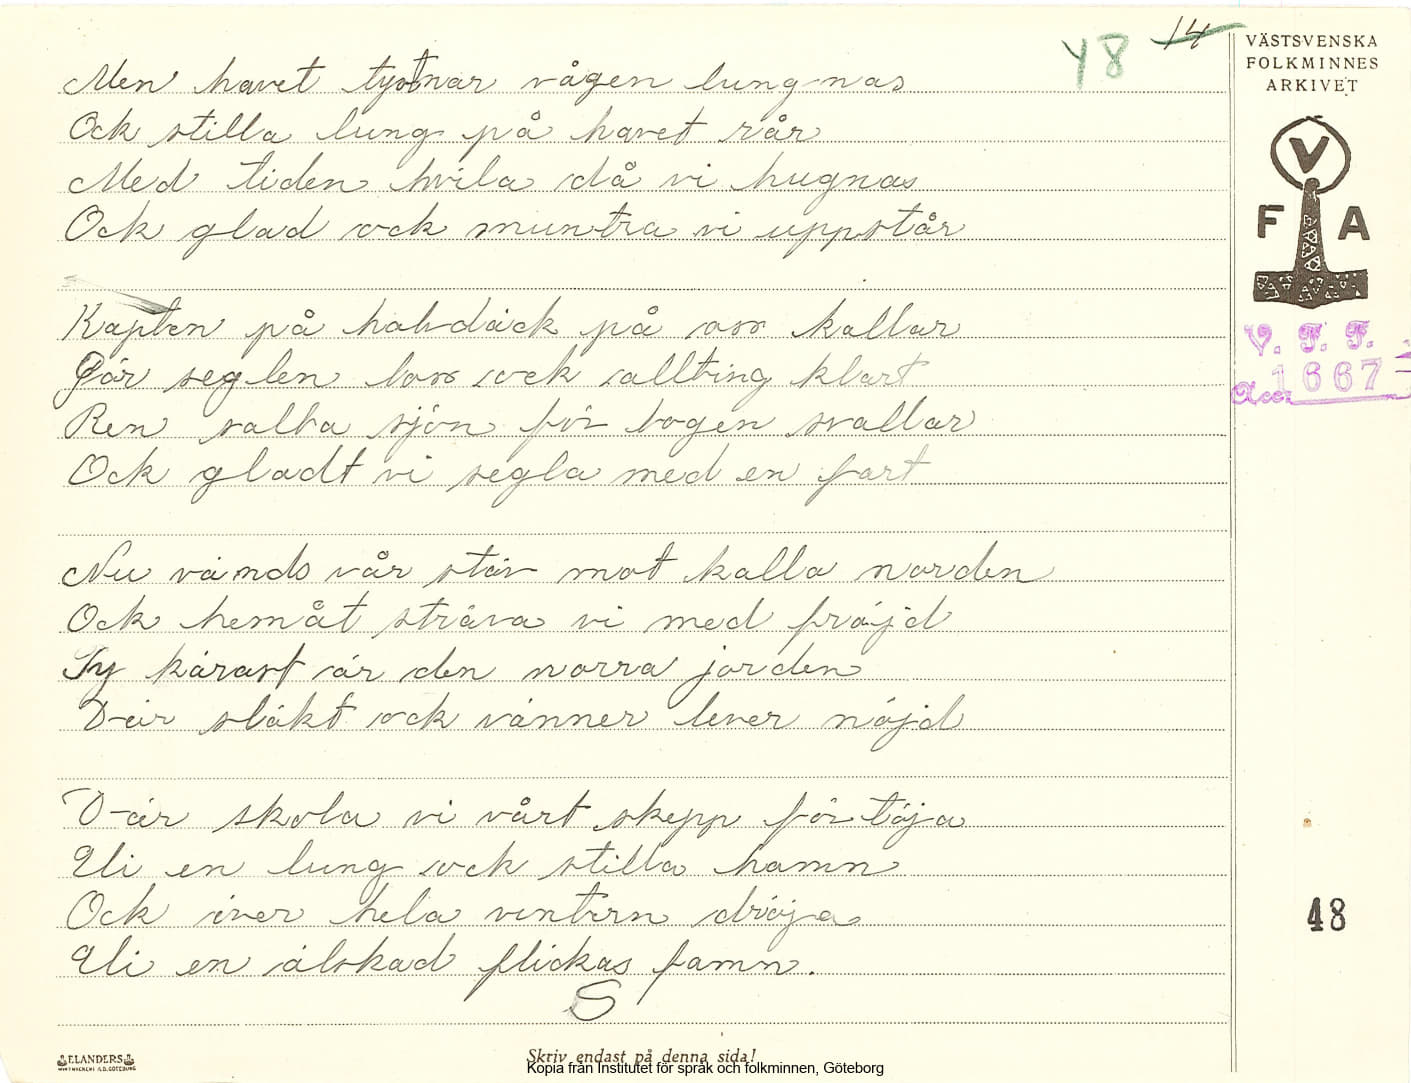 48 14
VÄSTSVENSKA
FOLKMINNES
ARKIVET
V
F A
V. F. F.
Acc. 1667
Men havet tystnar vågen lungnas
Ock stilla lung på havet rår
Med tiden hvila då vi hugnas
Ock glad ock muntra vi uppstår
Kapten på halvdäck på oss kallar
Gör seglen loss ock allting klart
Ren salta sjön för bogen svallar
Ock gladt vi segla med en fart
Nu vänds vår stäv mot kalla norden
Ock hemåt sträva vi med fröjd
Ty kärast är den norra jorden
Där släkt ock vänner lever nöjd
Där skola vi vårt skepp förtöja
Uti en lung ock stilla hamn
Ock över hela vintern dröja
Uti en älskad flickas famn.
S
48
ELANDERS
Skriv endast på denna sida!
Kopia från Institutet för språk och folkminnen, Göteborg